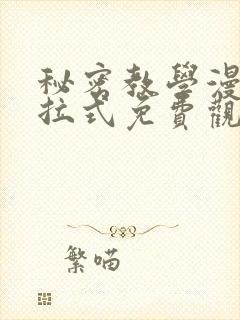 秘密教學漫
拉式免費觀
繁喵